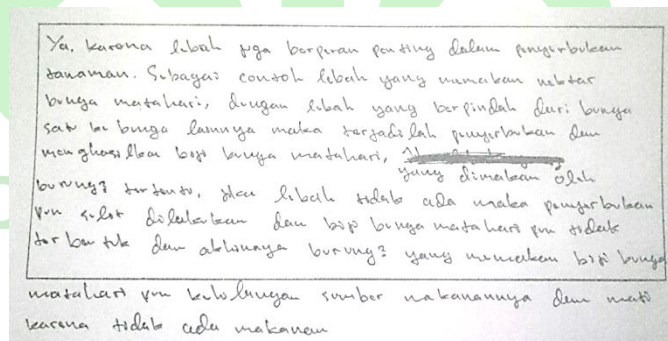 Ya, karena lebah juga berperan penting dalam penyerbukan
tanaman. Sebagai contoh lebah yang memakan nektar
bunga matahari, dengan lebah yang berpindah dari bunga
satu ke bunga lainnya maka terjadilah penyerbukan dan
menghasilkan biji bunga matahari,
yang dimakan oleh
burung2 tertentu, jika lebah tidak ada maka penyerbukan
pun sulit dilakukan dan biji bunga matahari pun tidak
terbentuk dan akhirnya burung2 yang memakan biji bunga
matahari pun kehilangan sumber makanannya dan mati
karena tidak ada makanan